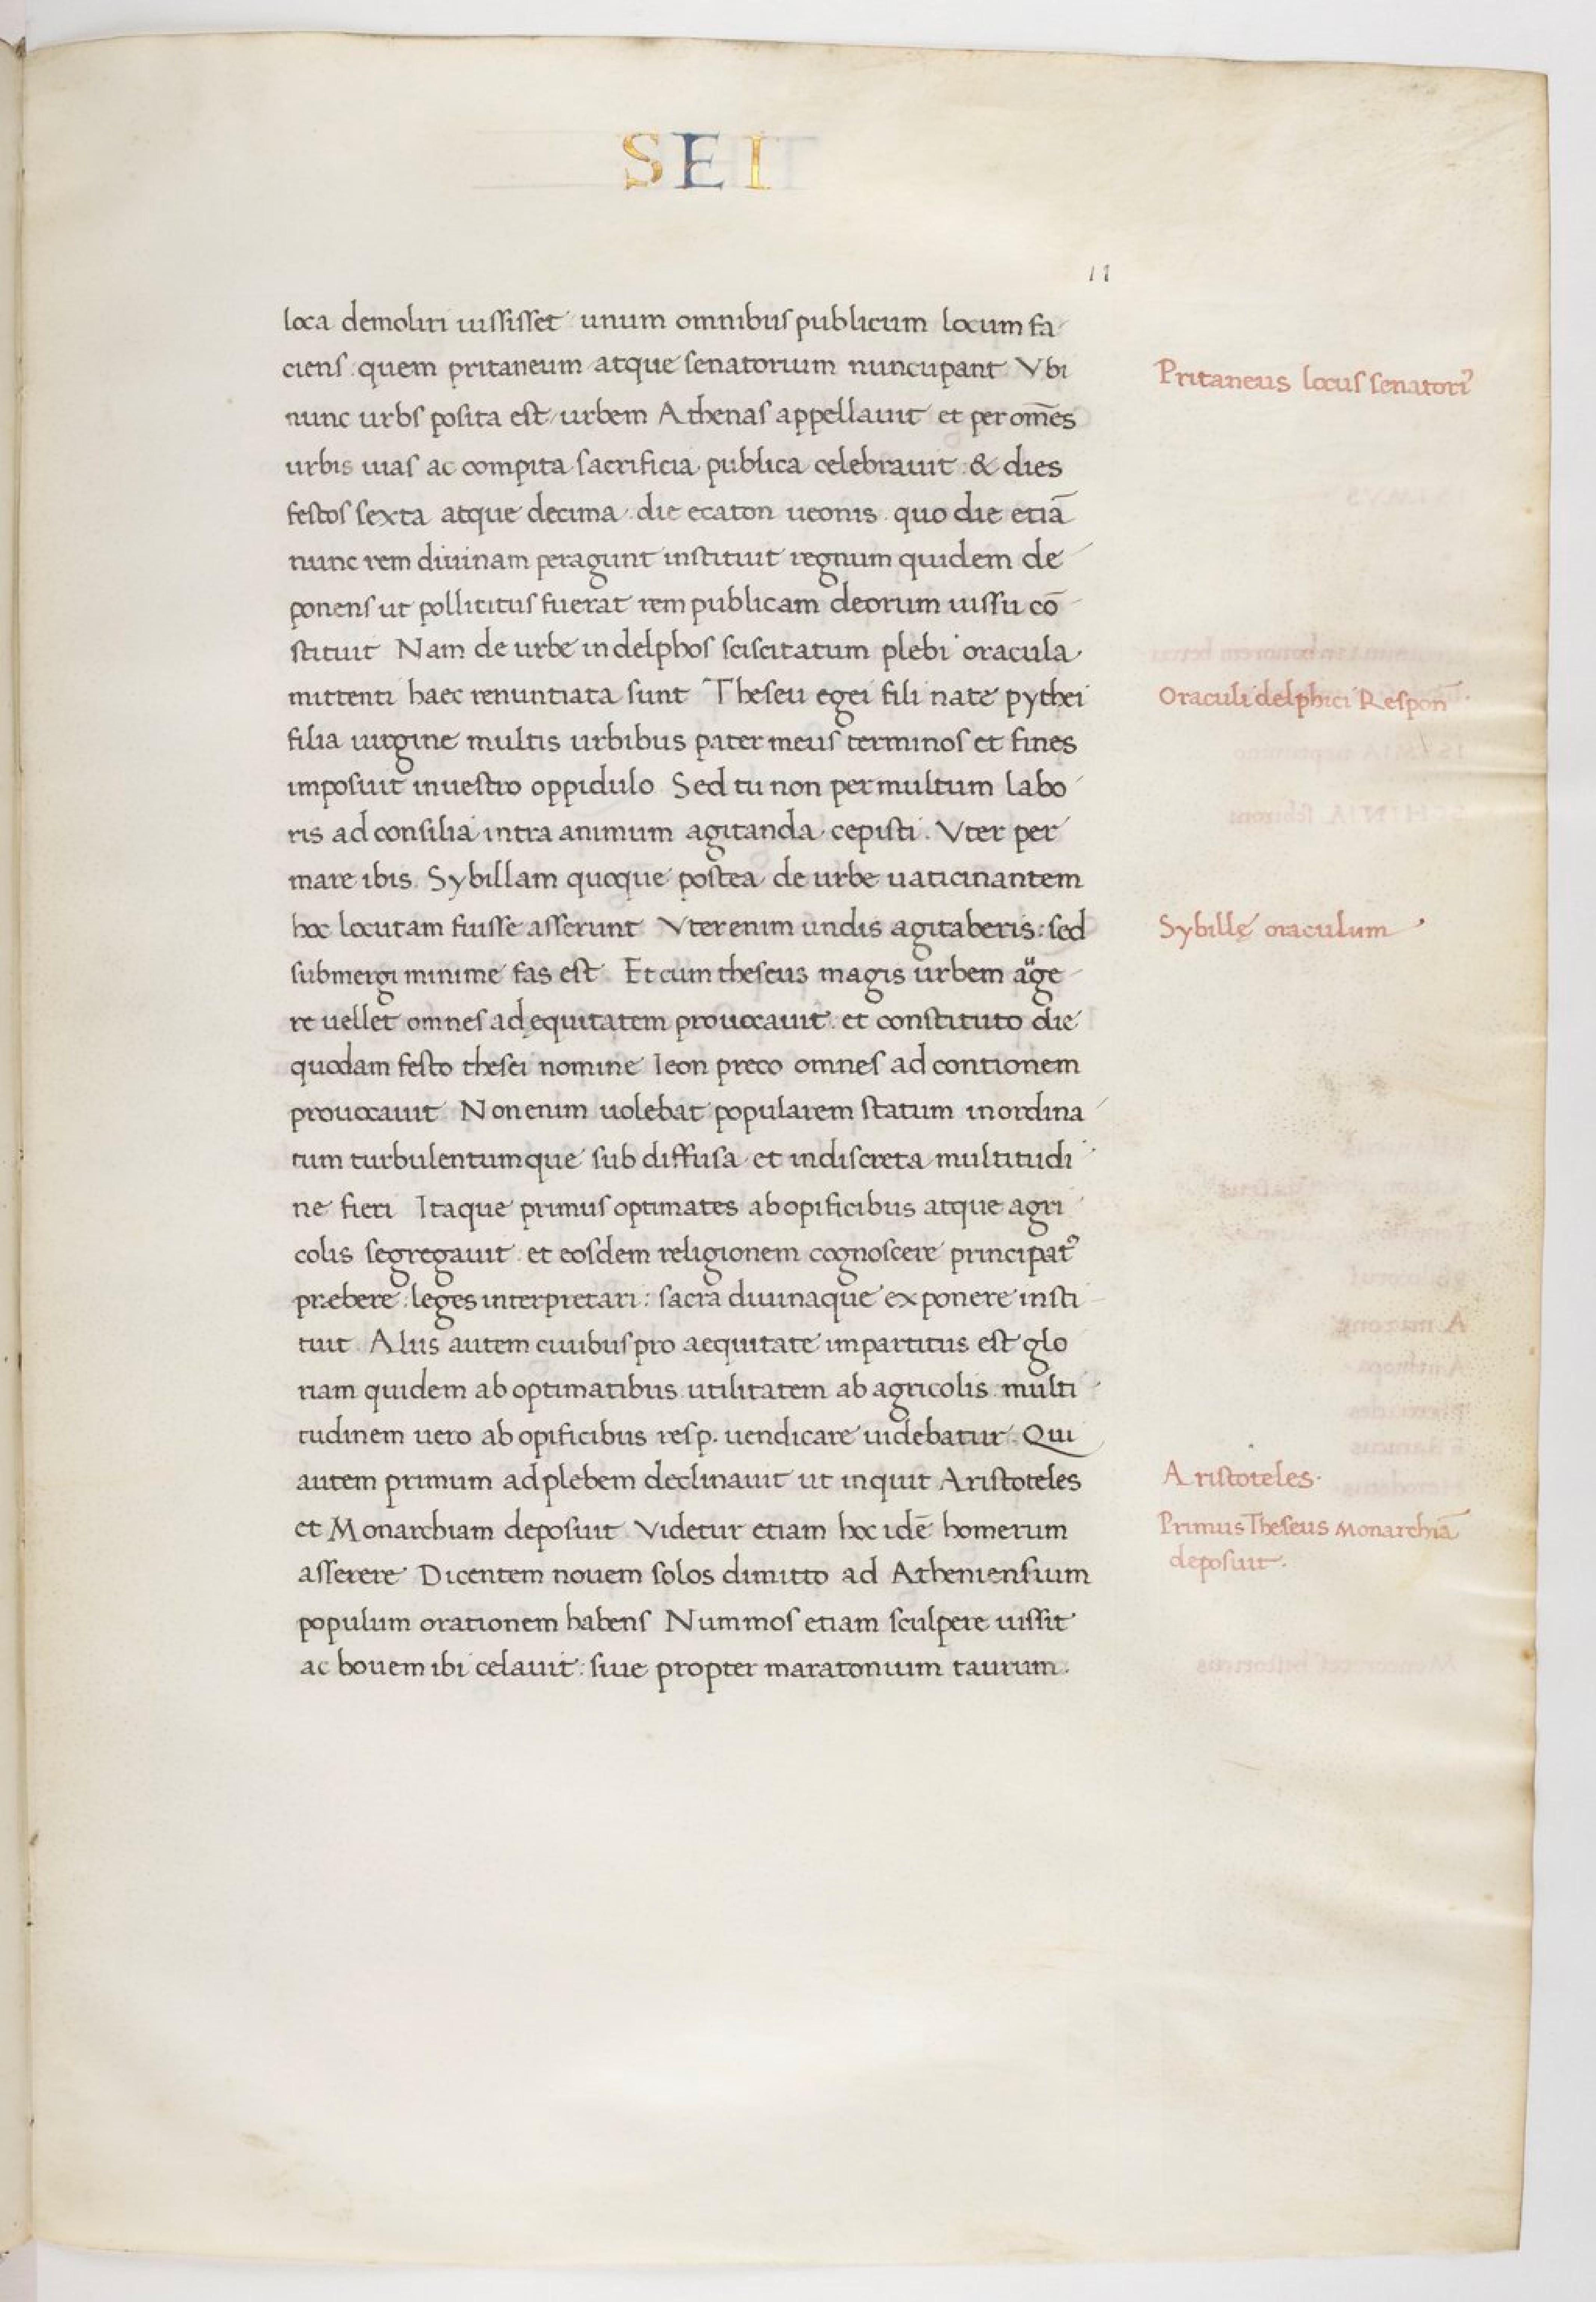 SEI
11
loca demoliri iussisset unum omnibus publicum locum fa
ciens quem pritaneum atque senatorium nuncupant Vbi
Pritaneus locus senatori⁹
nunc urbs posita est urbem Athenas appellauit et per om̄es
urbis uias ac compita sacrificia publica celebrauit : & dies
festos sexta atque decima die ecaton ueonis quo die etiā
nunc rem diuinam peragunt instituit regnum quidem de
ponens ut pollicitus fuerat rem publicam deorum iussu cō
stituit Nam de urbe in delphos sciscitatum plebi oracula
mittenti haec renuntiata sunt Theseu egei fili nate pythei
Oraculi delphici Respon̄
filia uirgine multis urbibus pater meus terminos et fines
imposuit in uestro oppidulo Sed tu non per multum labo
ris ad consilia intra animum agitanda cepisti . Vter per
mare ibis . Sybillam quoque postea de urbe uaticinantem
hoc locutam fuisse asserunt Vter enim undis agitaberis : sed
Sybillę oraculum
submergi minime fas est . Et cum theseus magis urbem äge
re uellet omnes ad equitatem prouocauit . et constituto die
quodam festo thesei nomine leon preco omnes ad contionem
prouocauit Non enim uolebat popularem statum inordina
tum turbulentumque sub diffusa et indiscreta multitudi
ne fieri Itaque primus optimates ab opificibus atque agri
colis segregauit . et eosdem religionem cognoscere principat⁹
præbere : leges interpretari : sacra diuinaque exponere insti
tuit . Aliis autem ciuibus pro aequitate impartitus est glo
riam quidem ab optimatibus utilitatem ab agricolis multi
tudinem uero ab opificibus resp. uendicare uidebatur . Qui
autem primum ad plebem declinauit ut inquit Aristoteles
Aristoteles .
et Monarchiam deposuit Videtur etiam hoc idē homerum
Primus Theseus Monarchiā
deposuit .
asserere Dicentem nouem solos dimitto ad Atheniensium
populum orationem habens Nummos etiam sculpere iussit
ac bouem ibi celauit : siue propter maratonium taurum .